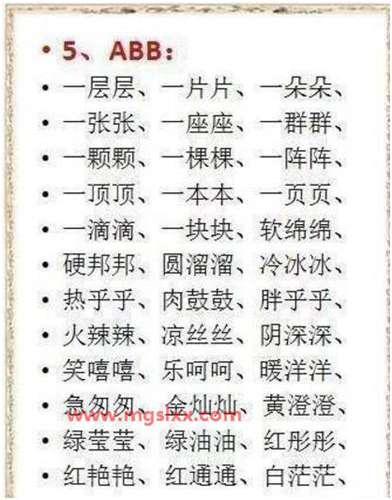 • 5、ABB：
• 一层层、一片片、一朵朵、
• 一张张、一座座、一群群、
• 一颗颗、一棵棵、一阵阵、
• 一顶顶、一本本、一页页、
• 一滴滴、一块块、软绵绵、
• 硬邦邦、圆溜溜、冷冰冰、
• 热乎乎、肉鼓鼓、胖乎乎、
• 火辣辣、凉丝丝、阴深深、
• 笑嘻嘻、乐呵呵、暖洋洋、
• 急匆匆、金灿灿、黄澄澄、
www.mgslxx.com
• 绿莹莹、绿油油、红彤彤、
• 红艳艳、红通通、白茫茫、